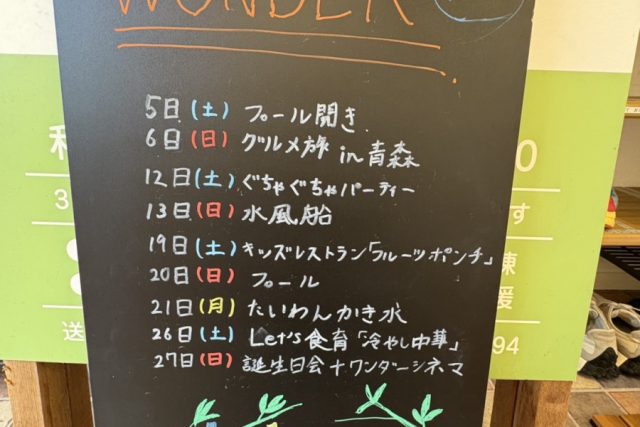 WONDER
5日(土) プール開き
6日(日) グルメ旅 in 青森
12日(土) ぐちゃぐちゃパーティー
13日(日) 水風船
19日(土) キッズレストラン「フルーツポンチ」
20日(日) プール
21日(月) たいわんかき氷
26日(土) Let's食育「冷やし中華」
27日(日) 誕生日会+ワンダーシネマ
3
送
0
す
援
94